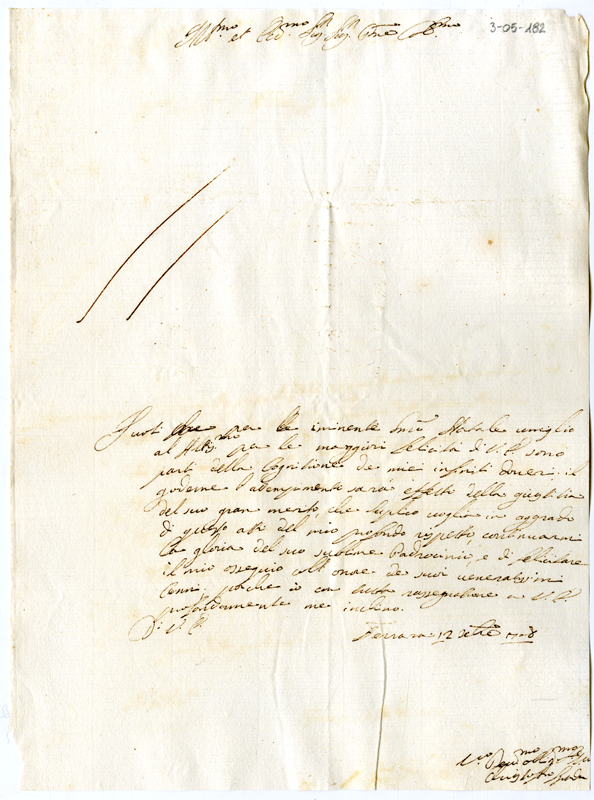 Ill.mo et Ecc.mo Sig. Sig. Col.mo
3-05-182
Suoti che per le iminente Natale umiglio
al per le maggiori felicità di V.E. sono
parti della Cognitione de miei infiniti doveri, il
goderne l'adempimento sarà effetto della
del suo gran merito, che suplico voglia in aggrado
di questo atto del mio profondo rispetto, continuarmi
la gloria del suo sublime Padrocinio, e di felicitare
il mio osseguio coll' onore de suoi veneratissimi
Cenni, poiche io con tutta rassegnatione a V.E.
profondamente me inchino.
Di V.E.
Ferrara 12 xbre